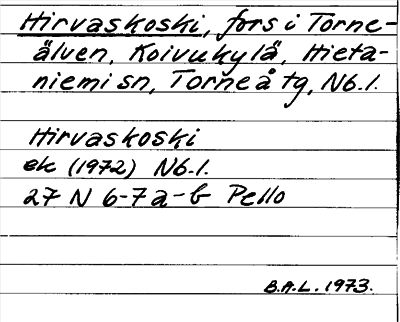 Hirvaskoski, fors i Torne-
älven, Koivukylä, Hieta-
niemi sn, Torneå tg, Nb.l.
Hirvaskoski
ek (1972) Nb.l.
27 N 6-7 a-b Pello
B.A.L. 1973.